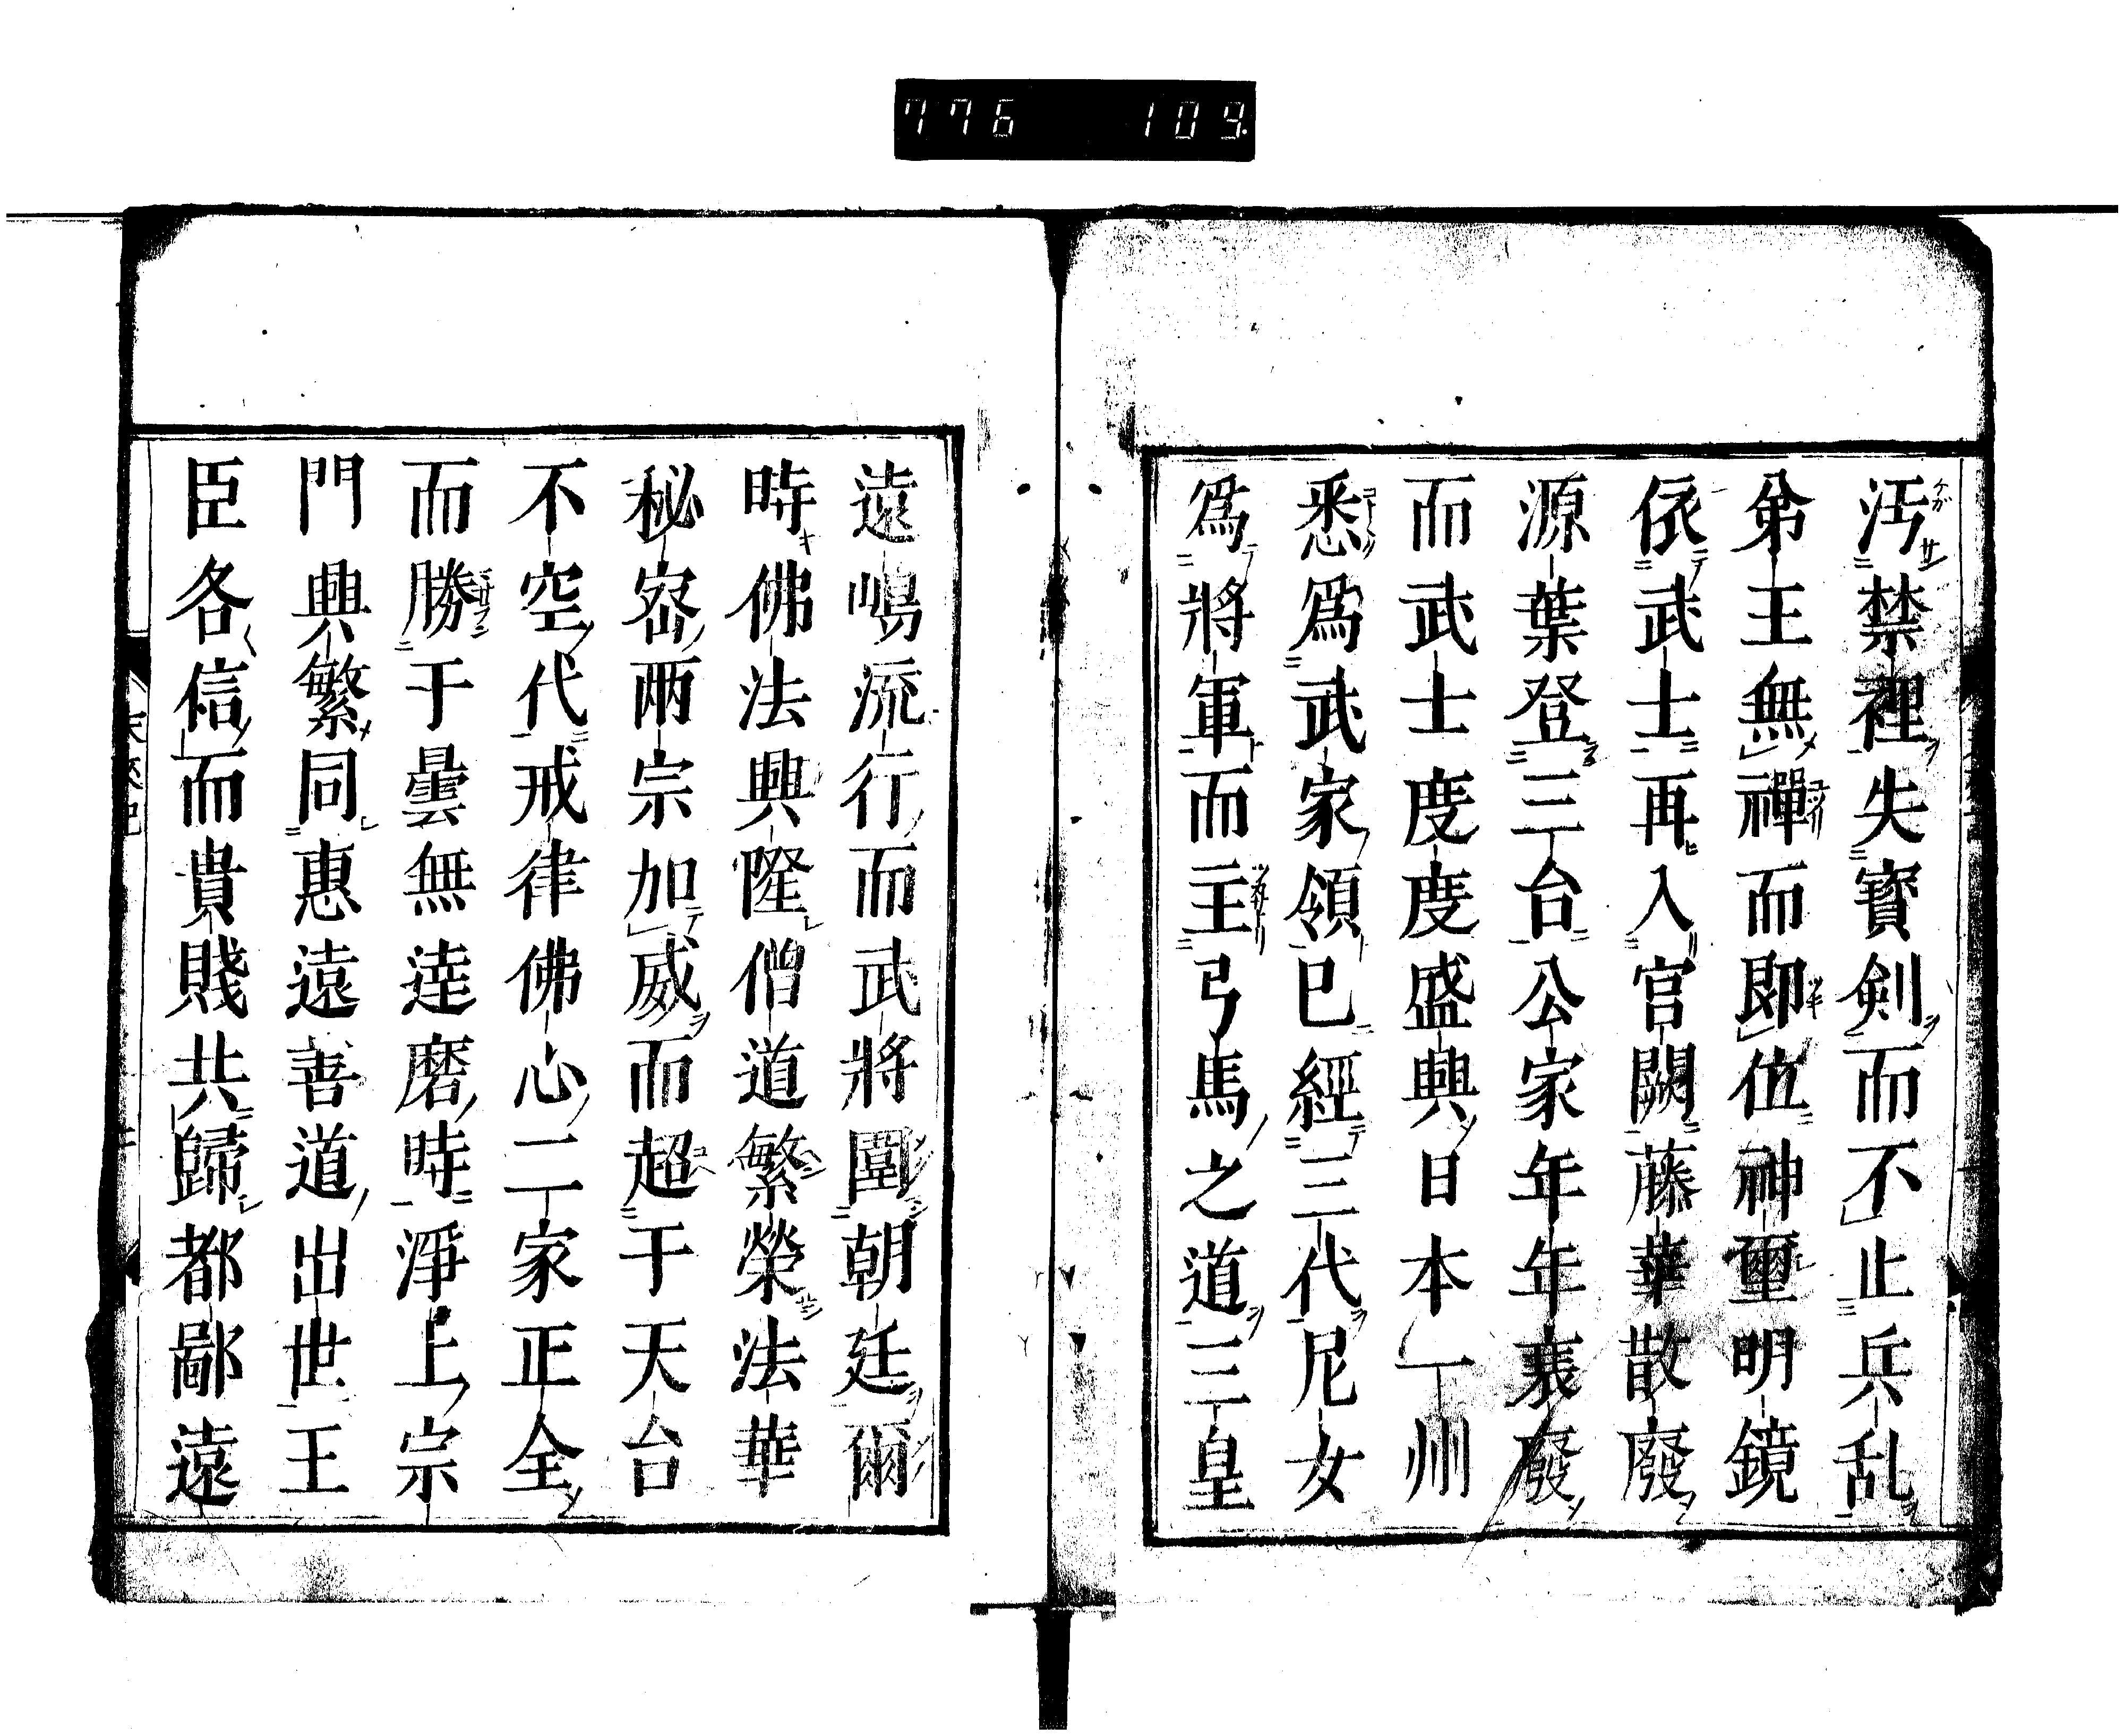 776 109
汚禁裡失寳剣而不止兵乱
弟王無禪而即位神璽明鏡
依武士再入官闕藤華散廢
源葉登三台公家年年衰廢
而武士度度盛興日本一州
悉爲武家領已經三代尼女
爲將軍而主弓馬之道三皇
遠嶋流行而武將圍朝廷爾
時佛法興隆僧道繁榮法華
秘宻兩宗加威而超于天台
不空代戒律佛心二家正全
而勝于曇無逹磨時淨土宗
門興繁同惠遠善導出世王
臣各信而貴賤共歸都鄙遠